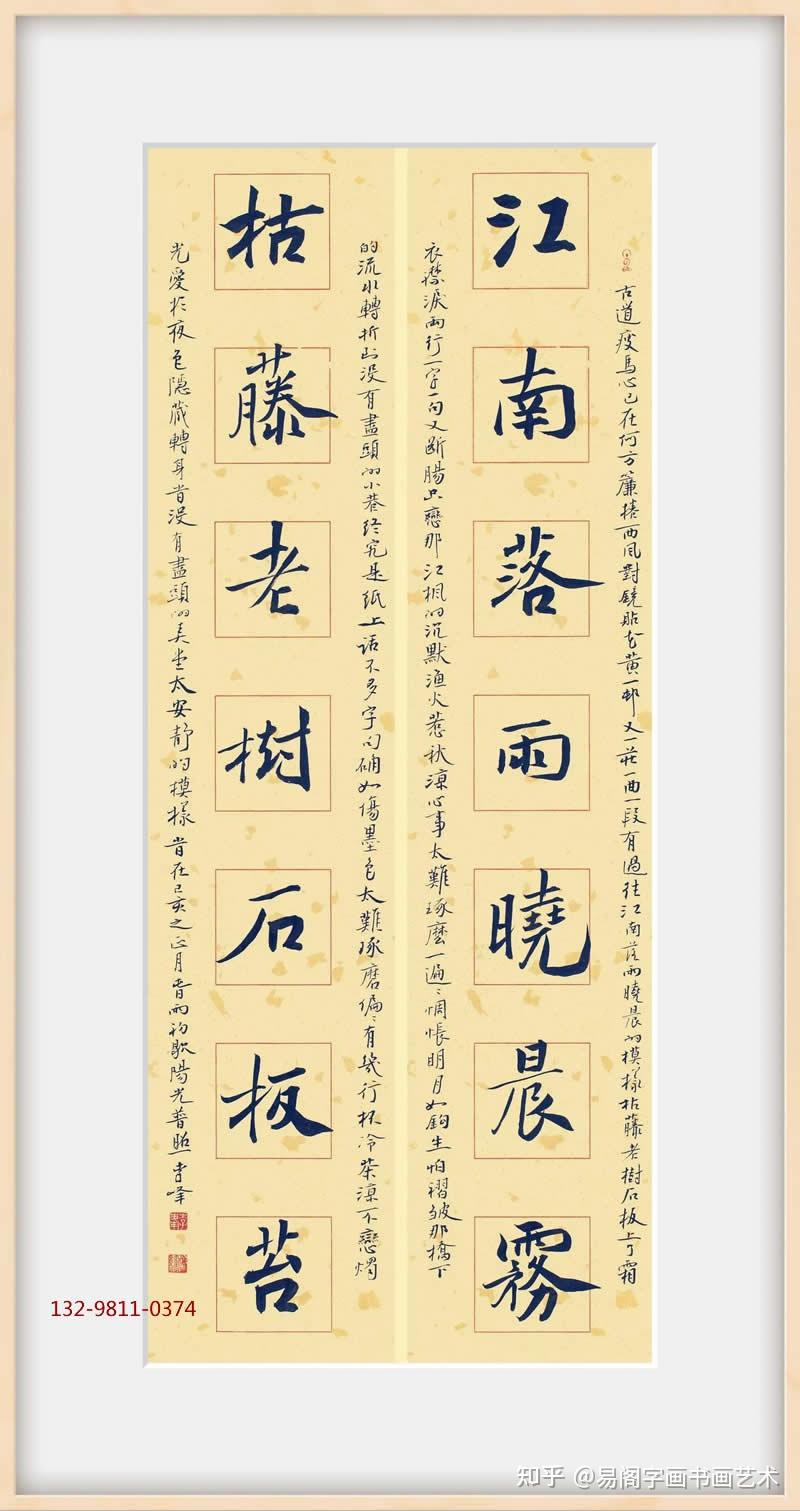 江南落雨曉晨霧
枯藤老樹石板苔
古道瘦馬心已在何方簾捲西風對鏡貼花黃一邨又一莊一曲一段有過往江南落雨曉晨的模樣枯藤老樹石板上了霜
衣襟淚兩行一字一句又斷腸只戀那江楓的沉默漁火惹秋涼心事太難琢麼一遍遍惆悵明月如鉤生怕褶皱那橋下
的流水轉折出没有盡頭的小巷终究是纸上话不多字句确如傷墨色太難琢磨偏偏有幾行杯冷茶涼不戀燭
光愛於夜色隱藏轉身昔没有盡頭的美半太安靜的模樣 昔在己亥之正月 雨初歇陽光普照 李峰
132-9811-0374
知乎 @易阁字画书画艺术